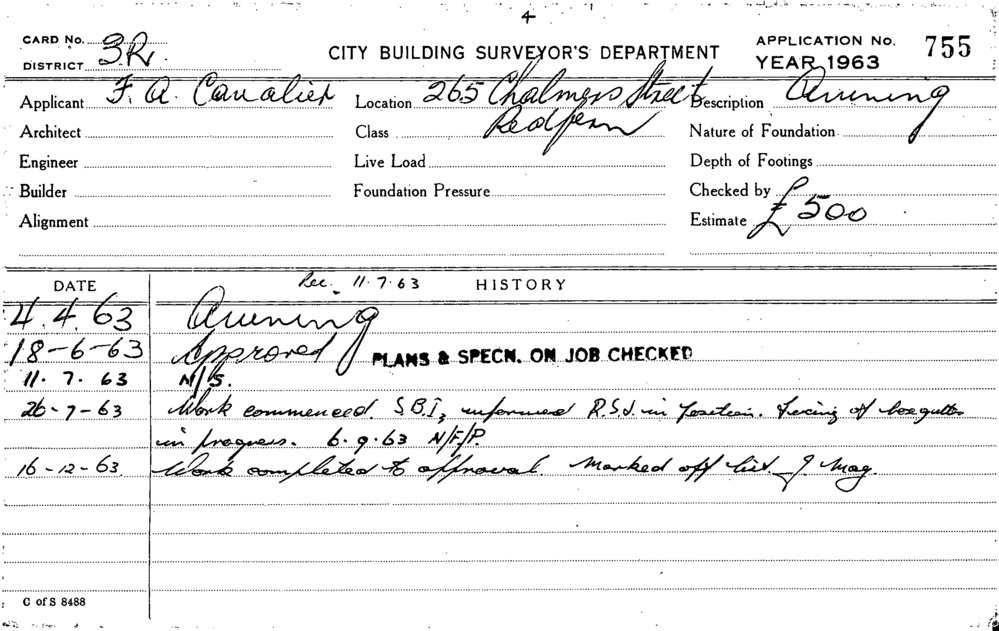 4
CARD No. 3R. CITY BUILDING SURVEYOR'S DEPARTMENT APPLICATION No. 755
DISTRICT YEAR 1963
Applicant F. A. Cavalier Location 265 Chalmers Street Description Awning
Architect Class Redfern Nature of Foundation
Engineer Live Load Depth of Footings
Builder Foundation Pressure Checked by
Alignment Estimate £500
DATE Rec. 11.7.63 HISTORY
4.4.63 Awning
18-6-63 Approved PLANS & SPECN. ON JOB CHECKED
11.7.63 N/S.
26-7-63 Work commenced. S.B.I. informed R.S.J. in position. Fixing of box gutter
in progress. 6.9.63 N/F/P.
16-12-63. Work completed to approval. Marked off list. J. Mag.
C of S 8488